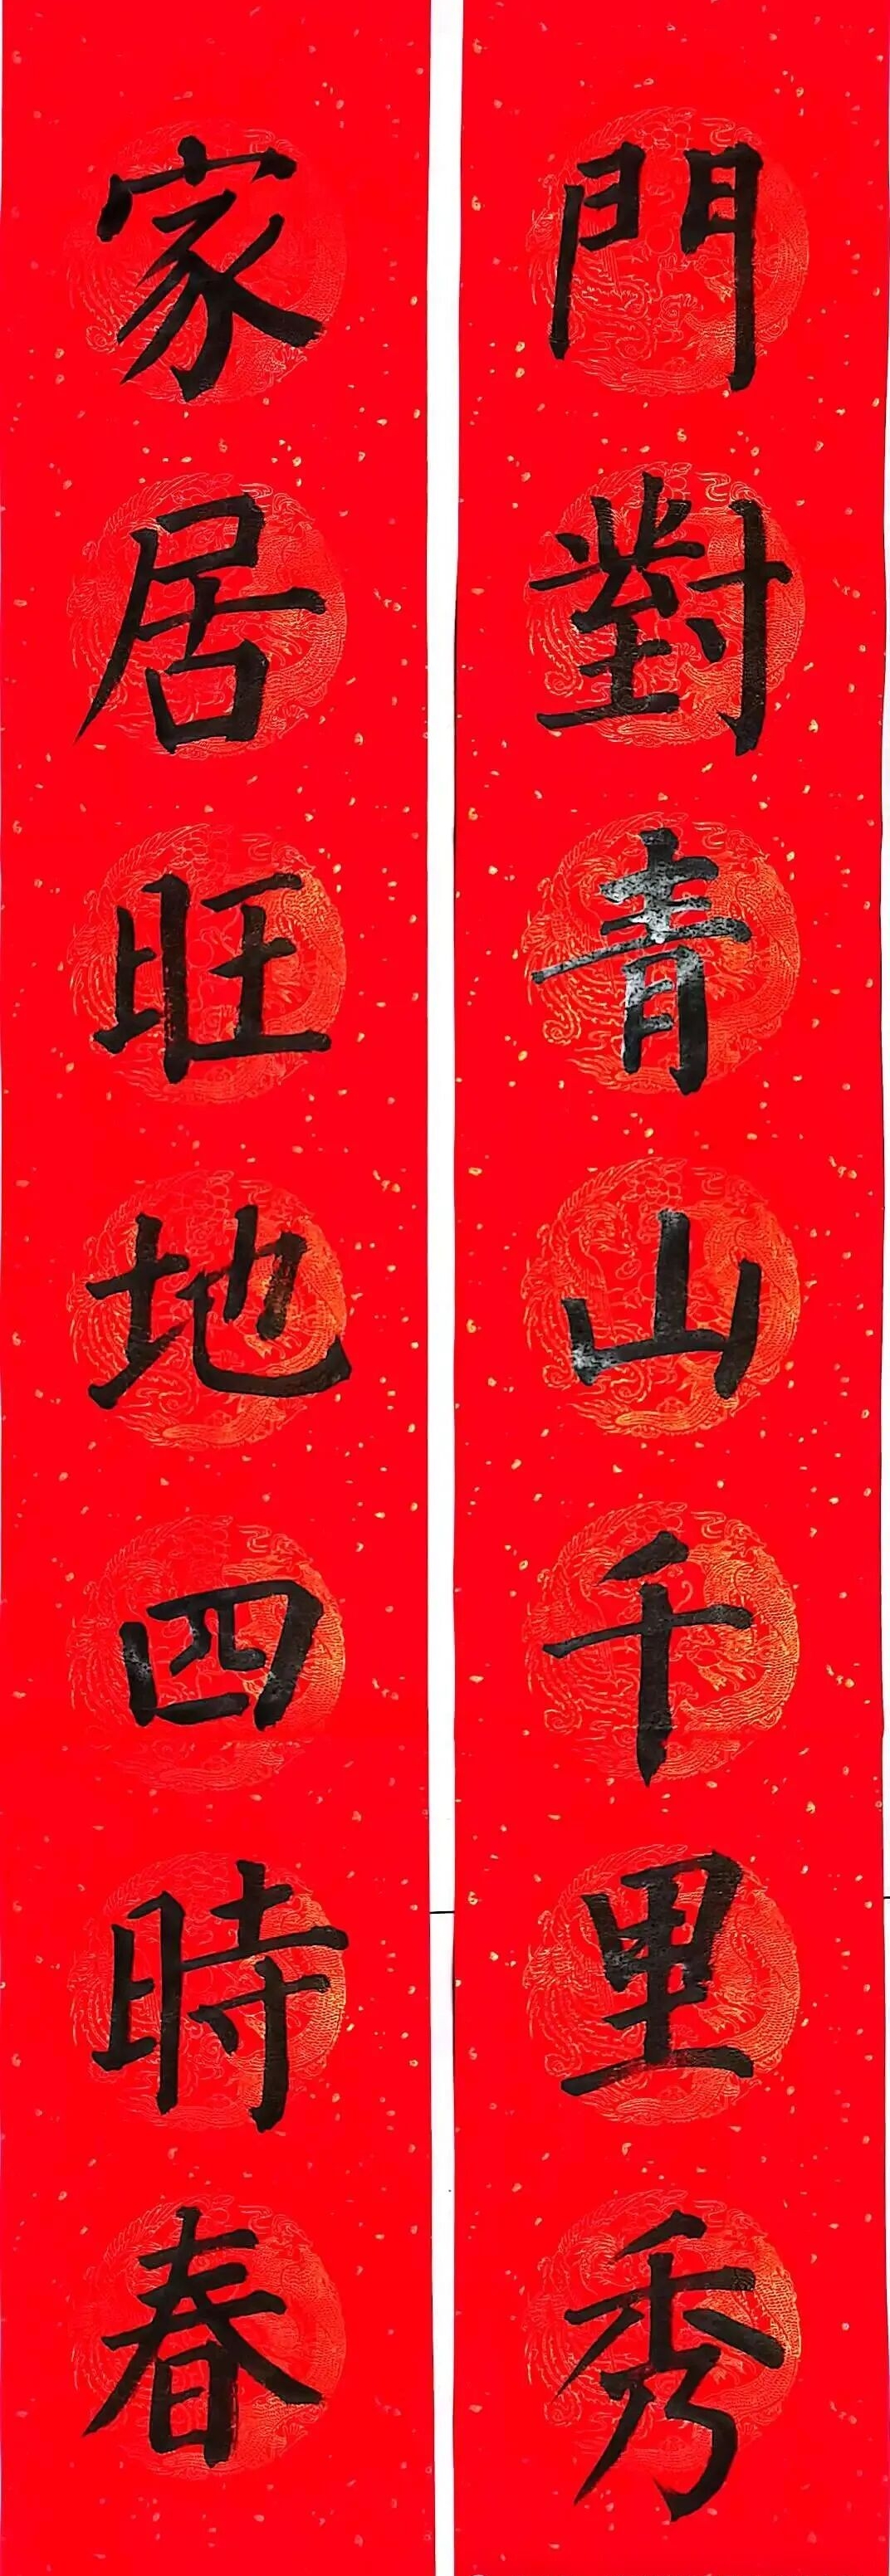 門對青山千里秀
家居旺地四時春